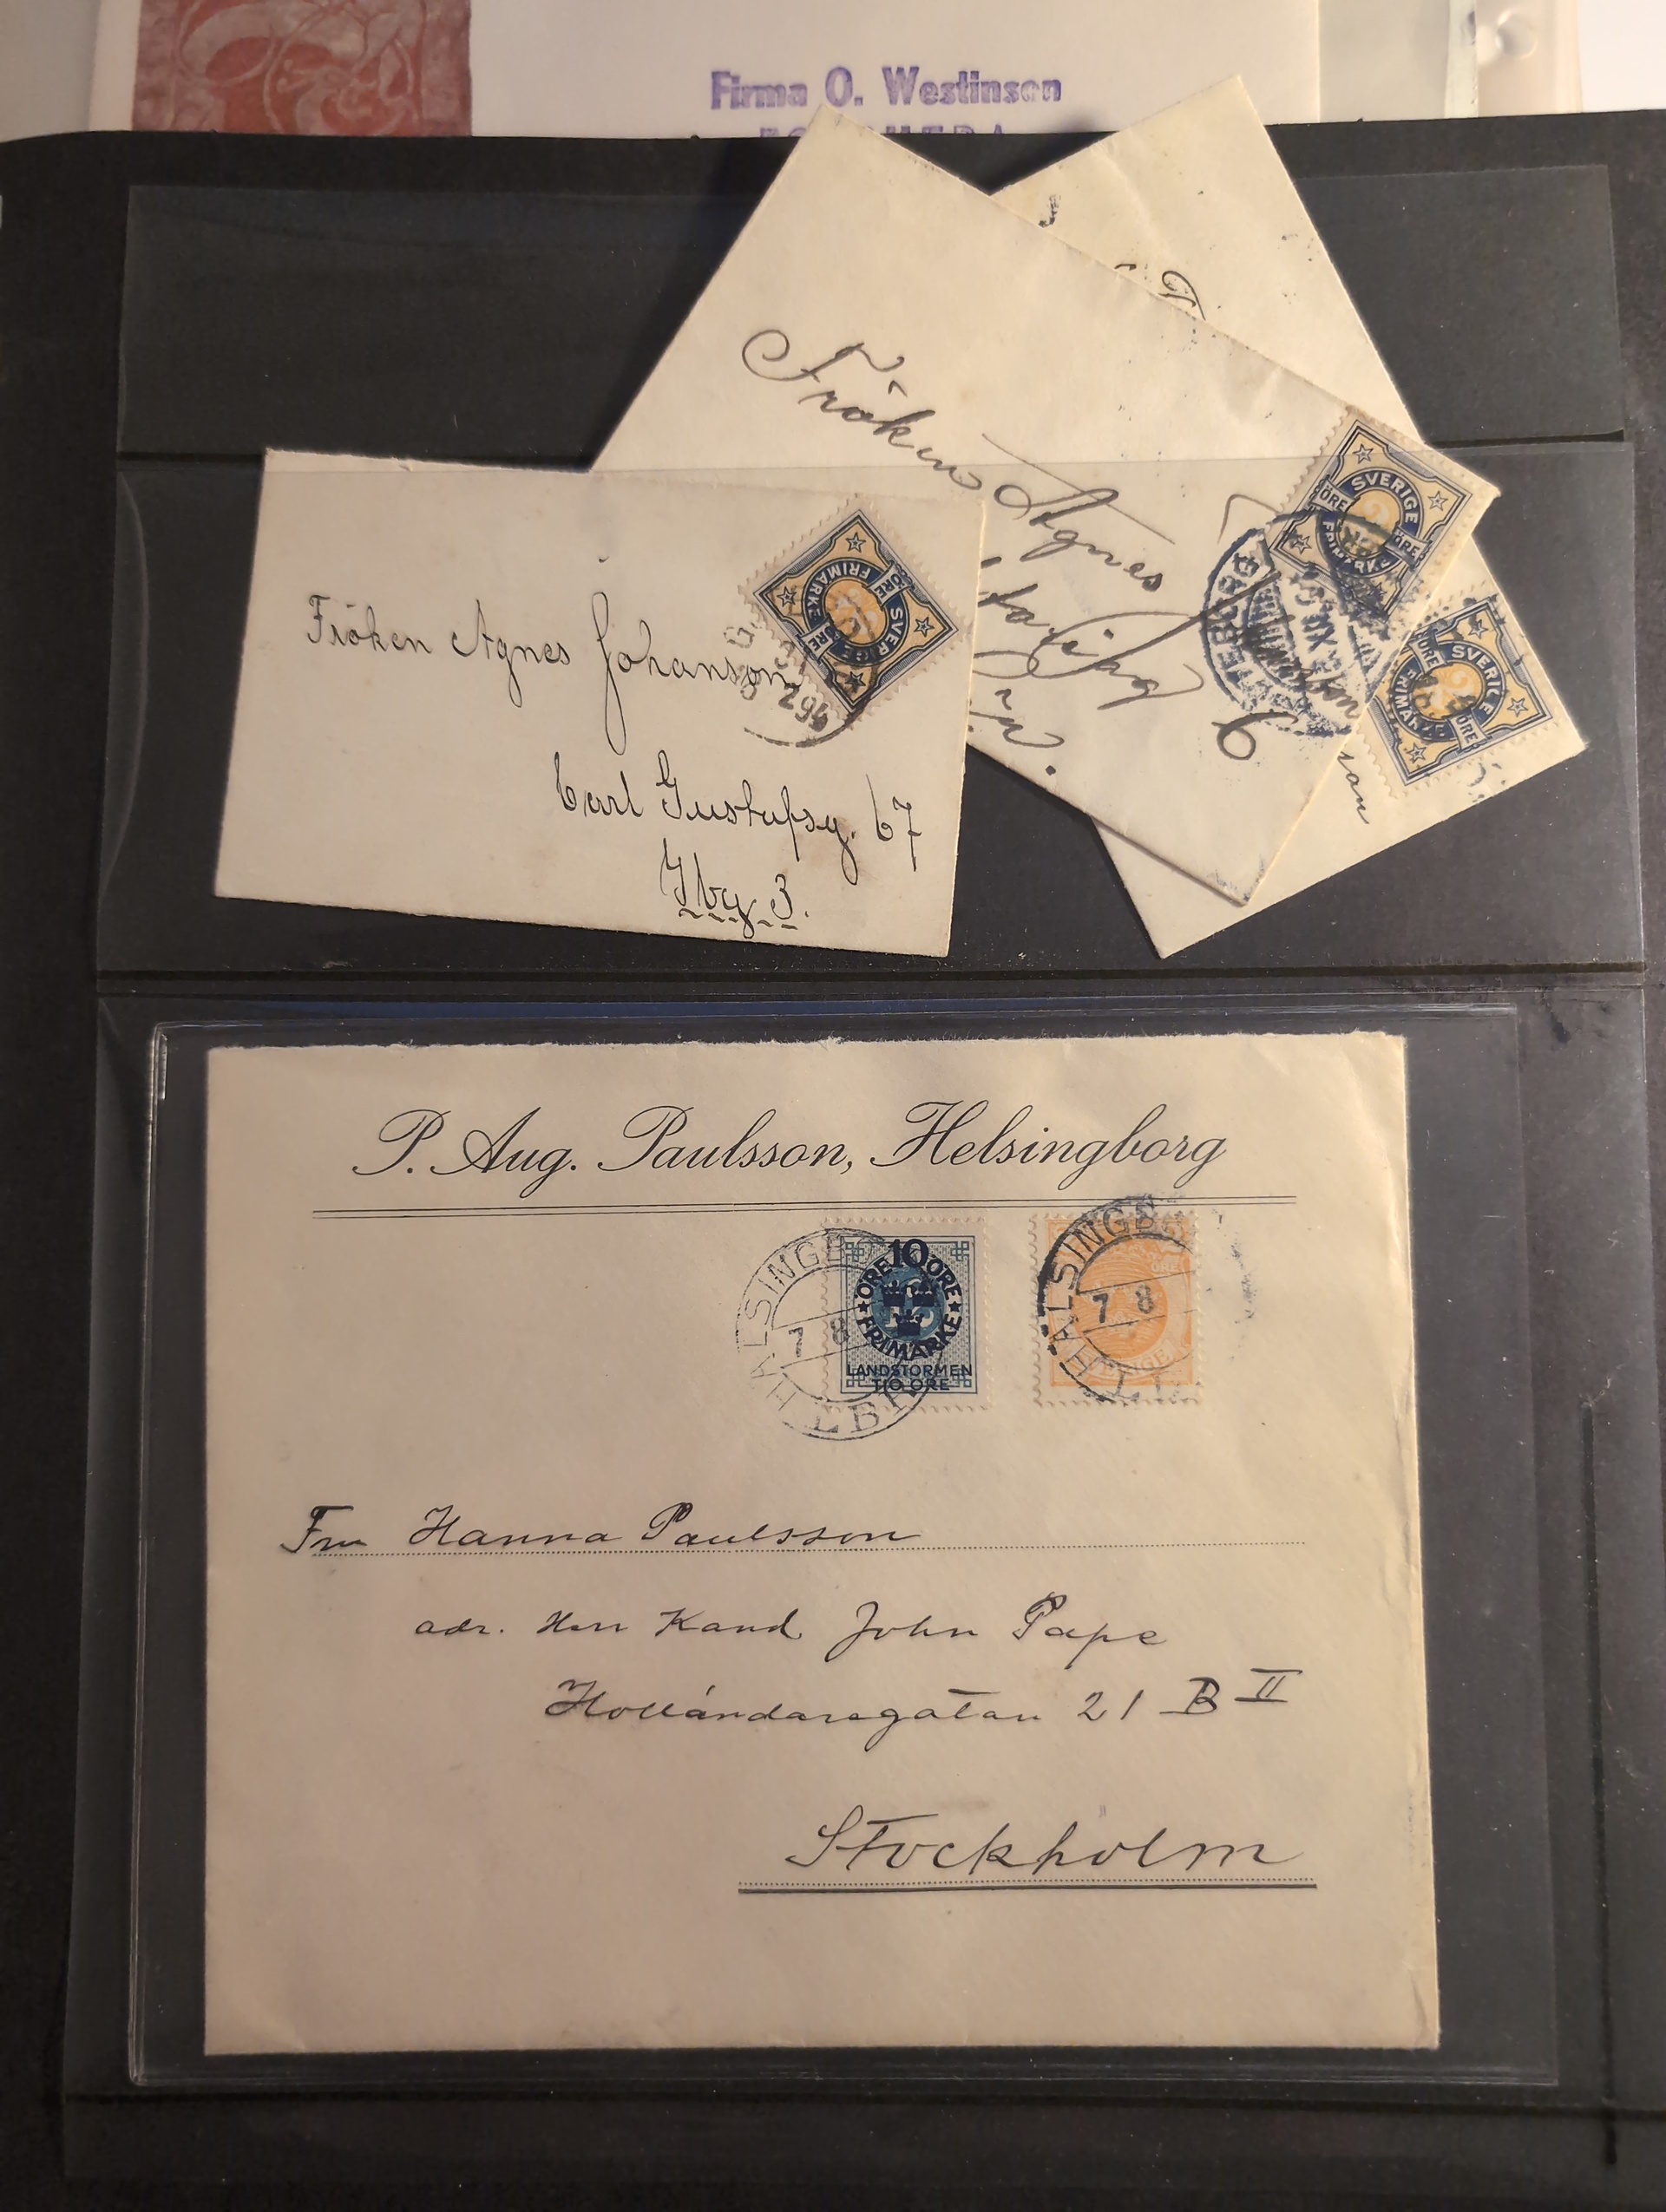 Firma O. Westinson
Fröken Agnes
6
SVERIGE
ÖRE ÖRE
FRIMÄRKE
SVERIGE
ÖRE ÖRE
FRIMÄRKE
son
Fröken Agnes Johanson
Carl Gustafsg. 67
Gbg 3.
SVERIGE
ÖRE ÖRE
FRIMÄRKE
294
P. Aug. Paulsson, Helsingborg
HÄLSINGB
7 8
LBR
10
ÖRE ÖRE
FRIMÄRKE
LANDSTORMEN
TIO ÖRE
HÄLSINGB
7 8
ÖRE
Fru Hanna Paulsson
adr. Herr Kand John Pape
Holländaregatan 21 B II
Stockholm